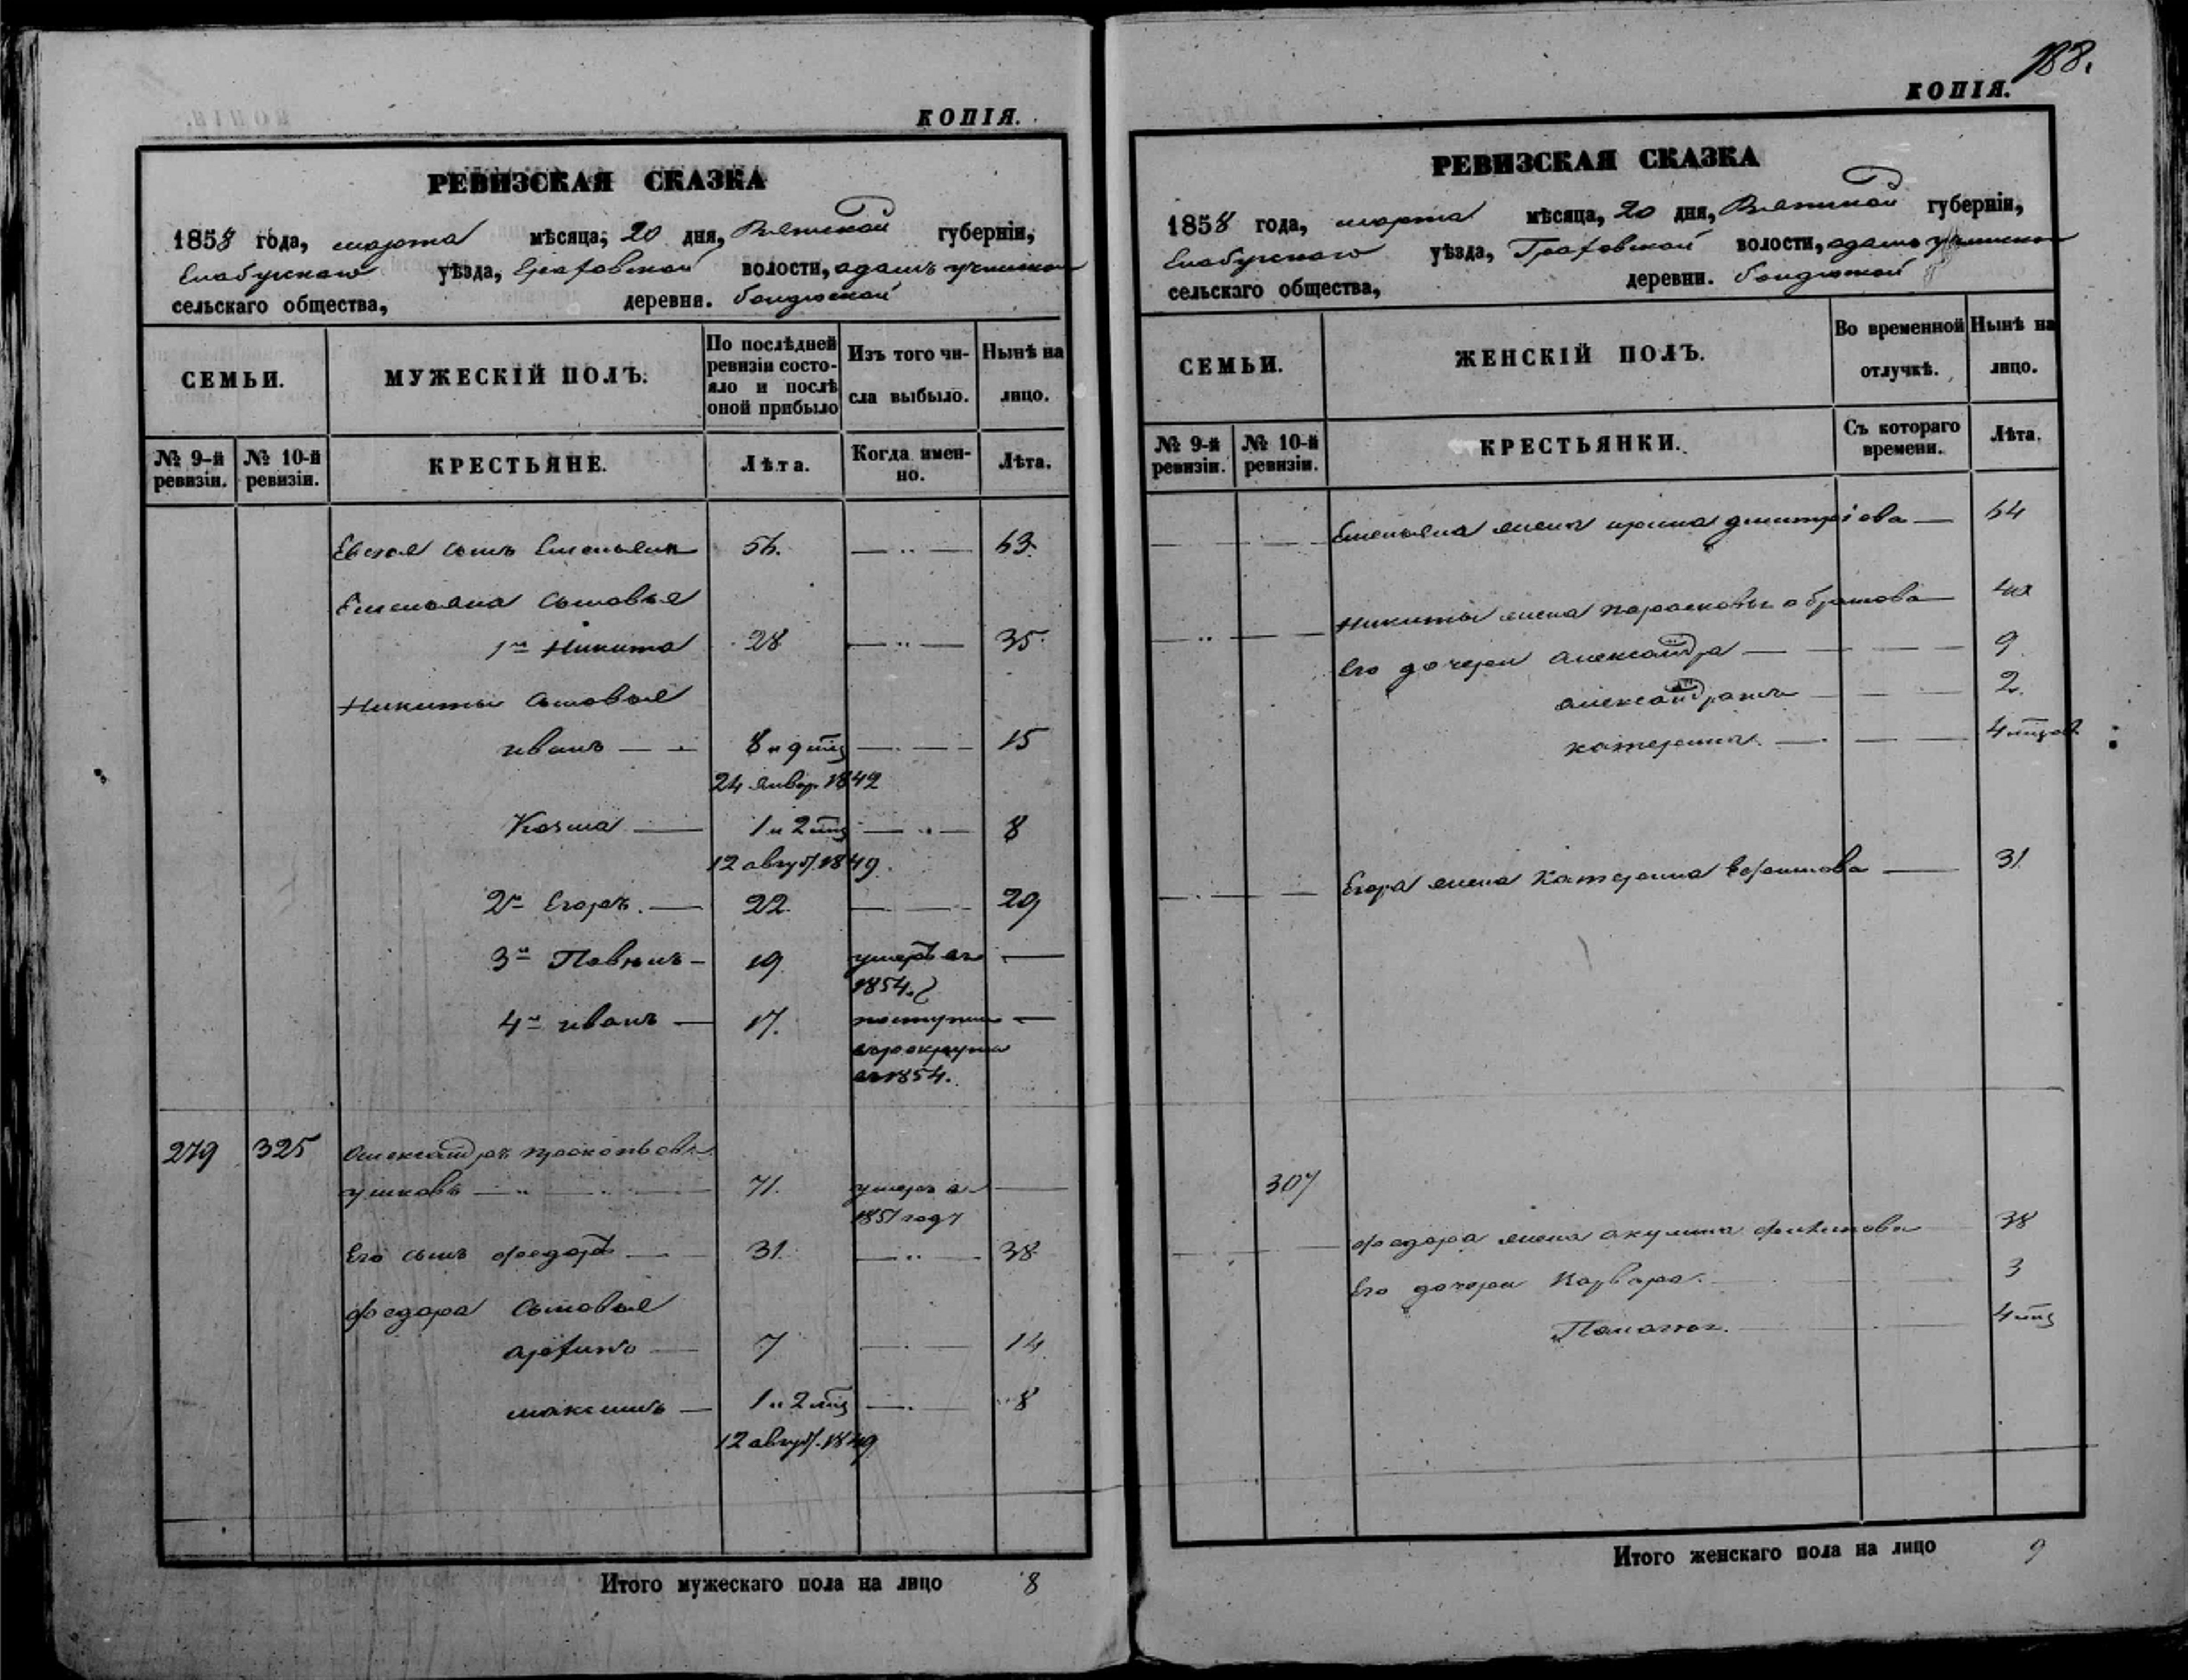 КОПІЯ.
РЕВИЗСКАЯ СКАЗКА
1858 года, марта мѣсяца, 20 дня, Вятской губерніи,
Елабужскаго уѣзда, Граховской волости, адамъ учинско
сельскаго общества, деревня. бондюжской
СЕМЬИ.
МУЖЕСКІЙ ПОЛЪ.
По послѣдней
ревизіи состо-
яло и послѣ
оной прибыло
Изъ того чи-
сла выбыло.
Нынѣ на
лицо.
№ 9-й
ревизіи.
№ 10-й
ревизіи.
КРЕСТЬЯНЕ.
Лѣта.
Когда имен-
но.
Лѣта.
сынъ Емельянъ 56. 63
Емельяна сыновья
1й Никита 28 35
Никиты сыновья
иванъ 8 и 9 мц 15
24 январ. 1842
Козма 1 и 2 мц 8
12 авгус. 1849
2й Егоръ. 22 29
3й 19 умеръ въ
1854.
4й иванъ 17.
въ рекруты
въ 1854.
279 325 Александръ прокопьевъ
ушковъ 71. умеръ въ
1851 году
Его сынъ федоръ 31. 38
федора сыновья
архипъ 7 14
максимъ 1 и 2 мц 8
12 авгус. 1849
Итого мужескаго пола на лицо 8
188.
КОПІЯ.
РЕВИЗСКАЯ СКАЗКА
1858 года, марта мѣсяца, 20 дня, Вятской губерніи,
Елабужскаго уѣзда, Граховской волости, адамъ учинско
сельскаго общества, деревни. бондюжской
СЕМЬИ.
ЖЕНСКІЙ ПОЛЪ.
Во временной
отлучкѣ.
Нынѣ на
лицо.
№ 9-й
ревизіи.
№ 10-й
ревизіи.
КРЕСТЬЯНКИ.
Съ котораго
времени.
Лѣта.
Емельяна жена ирина дмитріева 64
Никиты жена парасковья абрамова
Его дочери Александра 9
александра 2
катерина 4 мцов
Егора жена Катерина ефимова 31
307
федора жена акулина филипова 38
Его дочери Варвара. 3
4 мц
Итого женскаго пола на лицо 9